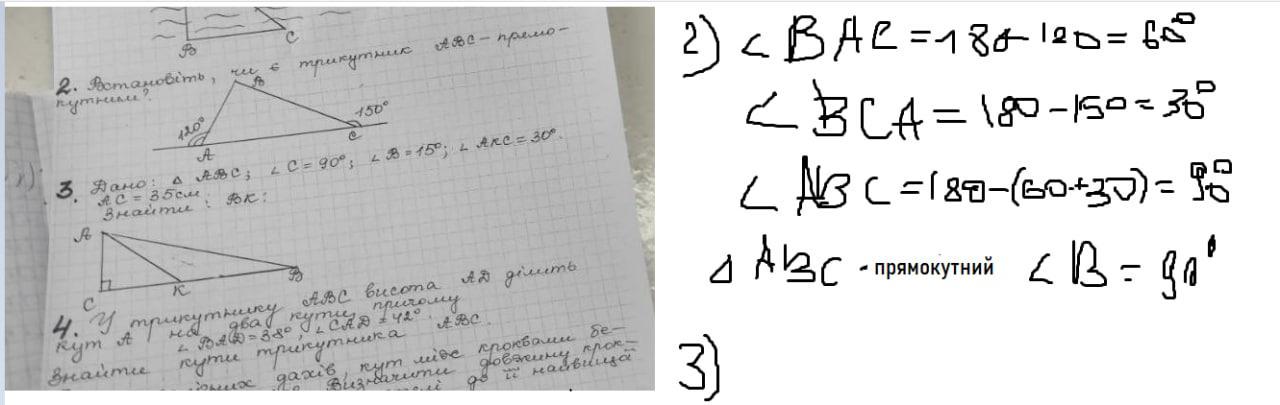 B
C
2. Встановіть, чи є трикутник ABC - прямо-
кутним?
B
120°
150°
A
C
3. Дано: △ ABC; ∠C = 90°; ∠B = 15°; ∠AKC = 30°.
AC = 35см.
Знайти: BK:
A
C
K
B
4. У трикутнику ABC висота AD ділить
кут A на два кути, причому
∠BAD = 38°, ∠CAD = 42°.
Знайти кути трикутника ABC.
дахів, кут між кроквами бе-
Визначити довжину крок-
до її найвища
2) ∠BAC = 180 - 120 = 60°
∠BCA = 180 - 150 = 30°
∠ABC = 180 - (60 + 30) = 90°
△ ABC - прямокутний ∠B = 90°
3)